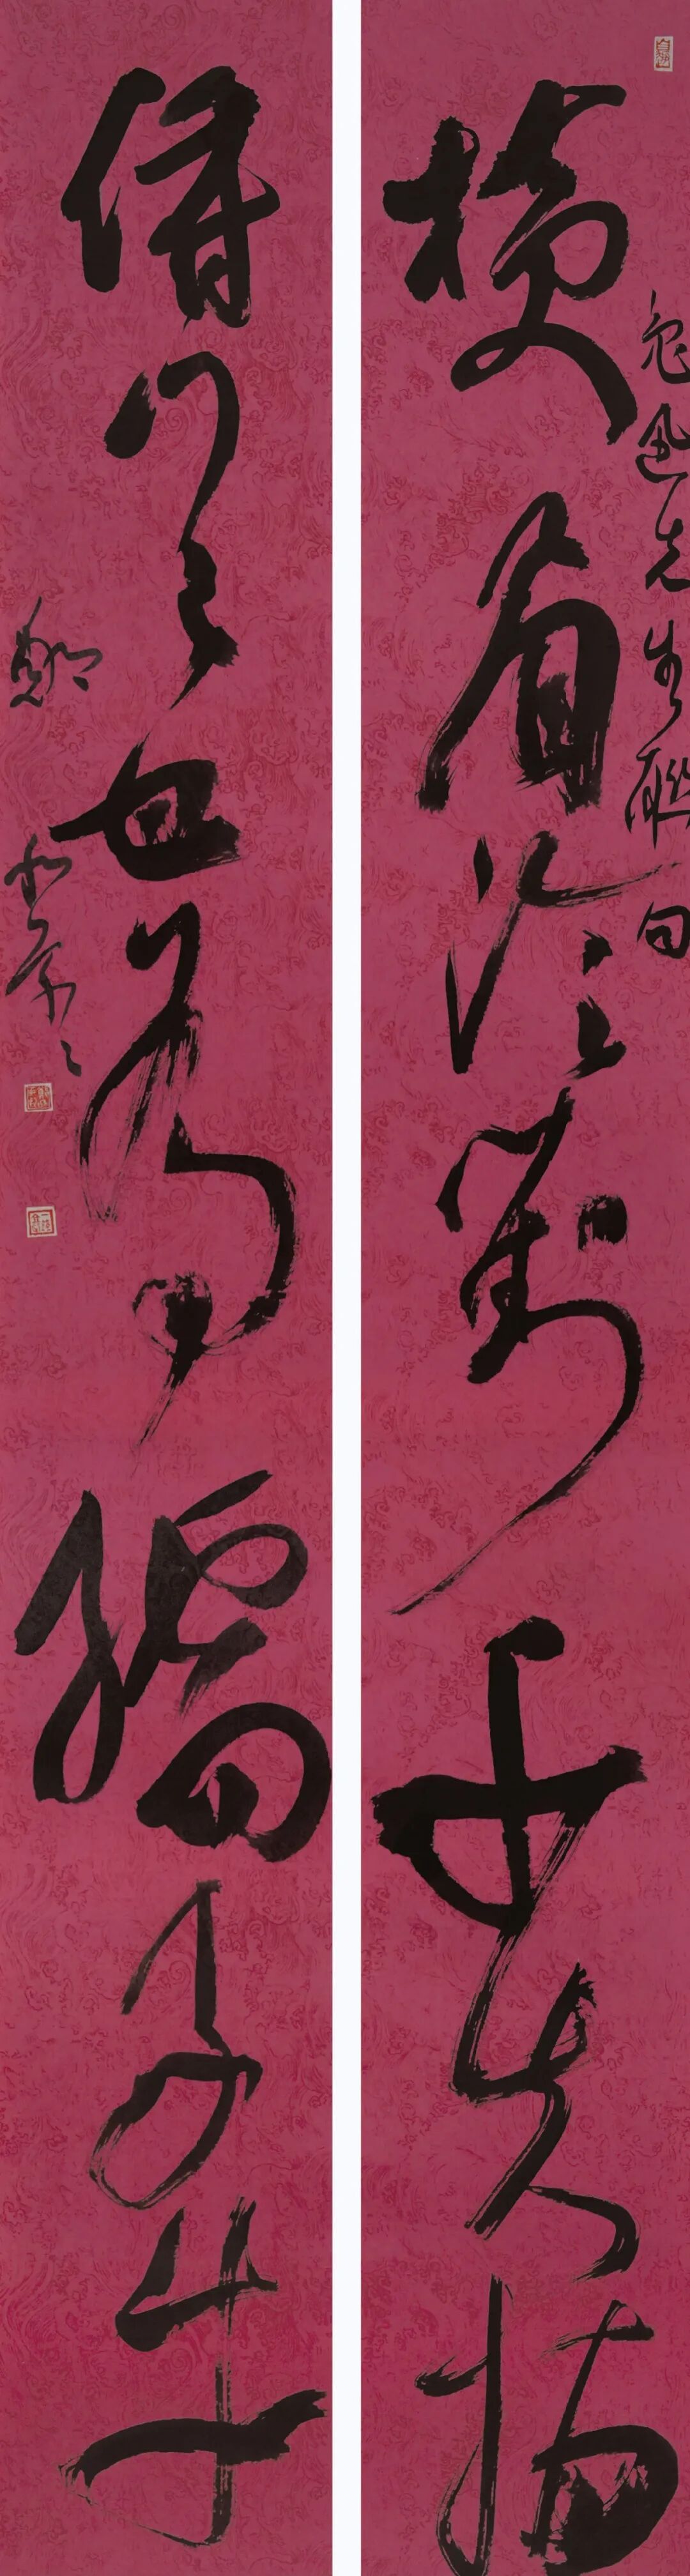 横眉冷对千夫指
鲁迅先生联句
俯首甘为孺子牛